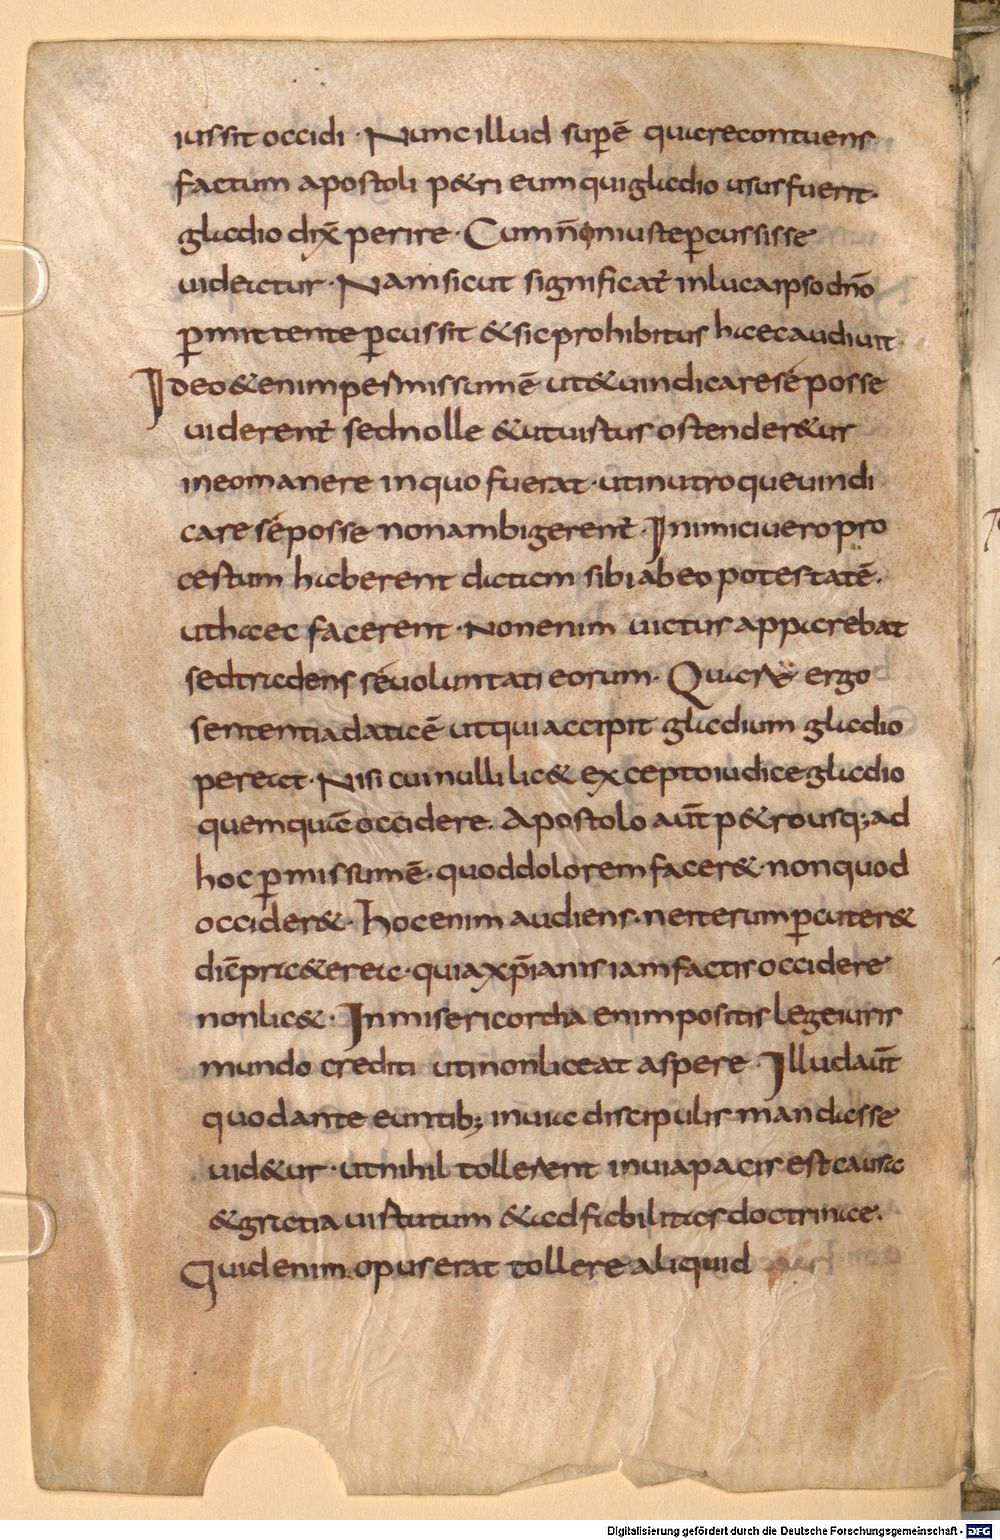 iussit occidi · Nunc illud suꝑē quare contuens
factum apostoli p&ri eum qui gladio usus fuerit·
gladio dix̄ perire · Cum ñ iniuste ꝑcussisse
uideatur · Nam sicut significat̄ in luca ipso dño
ꝑmittente ꝑcussit & sic prohibitus haec audiuit
Ideo & enim permissum ē ut & uindicare sé posse
uiderent̄ sed nolle & ut uirtus ostender&ur
in eo manere in quo fuerat · ut in utroque uindi
care sé posse non ambigerent̄ · Inimici uero pro
cestum haberent datam sibi ab eo potestatē·
ut haec facerent · Non enim uictus apparebat
sed tradens sé uoluntati eorum · Quare ergo
sententia data ē ut qui accipit gladium gladio
pereat · Nisi cui nulli lic& excepto iudice gladio
quemquā occidere. Apostolo aūt p&ro usq; ad
hoc ꝑmissum ē · quod dolorem facer& · non quod
occider& · Hoc enim audiens · ne iterum ꝑcuter&
dic̄ pra&erea · quia xp̄ianis iam factis occidere
non lic& · In misericordia enim positis lege iuris
mundo crediti uti non liceat aspere · Illud aūt
quod ante euntib; in uia discipulis mandasse
uid&ur · ut nihil tollerent in uia pacis est causa
& gratia uirtutum & ad fiabilitas doctrinae.
Quid enim opus erat tollere aliquid
Digitalisierung gefördert durch die Deutsche Forschungsgemeinschaft - DFG